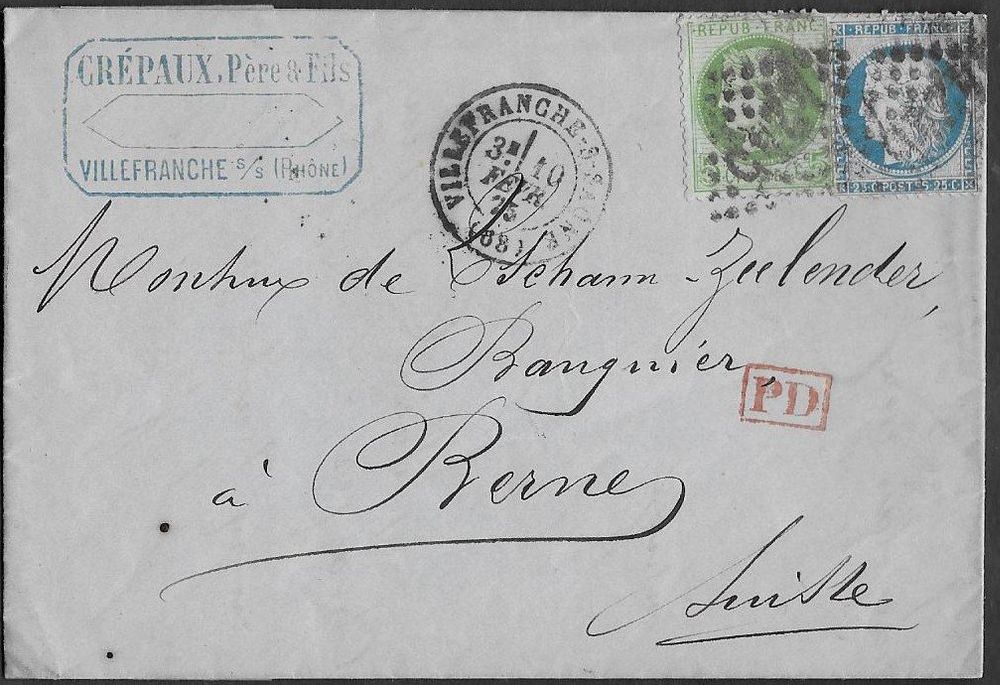 CRÉPAUX, Père & Fils
VILLEFRANCHE s/s (RHÔNE)
VILLEFRANCHE-S-SAONE
3E
10
FEVR
75
(68)
REPUB FRANC
5
REPUB FRANC
25 C POSTES 25 C
de Tschann-Zeelender,
Banquier,
PD
à Berne
Suisse